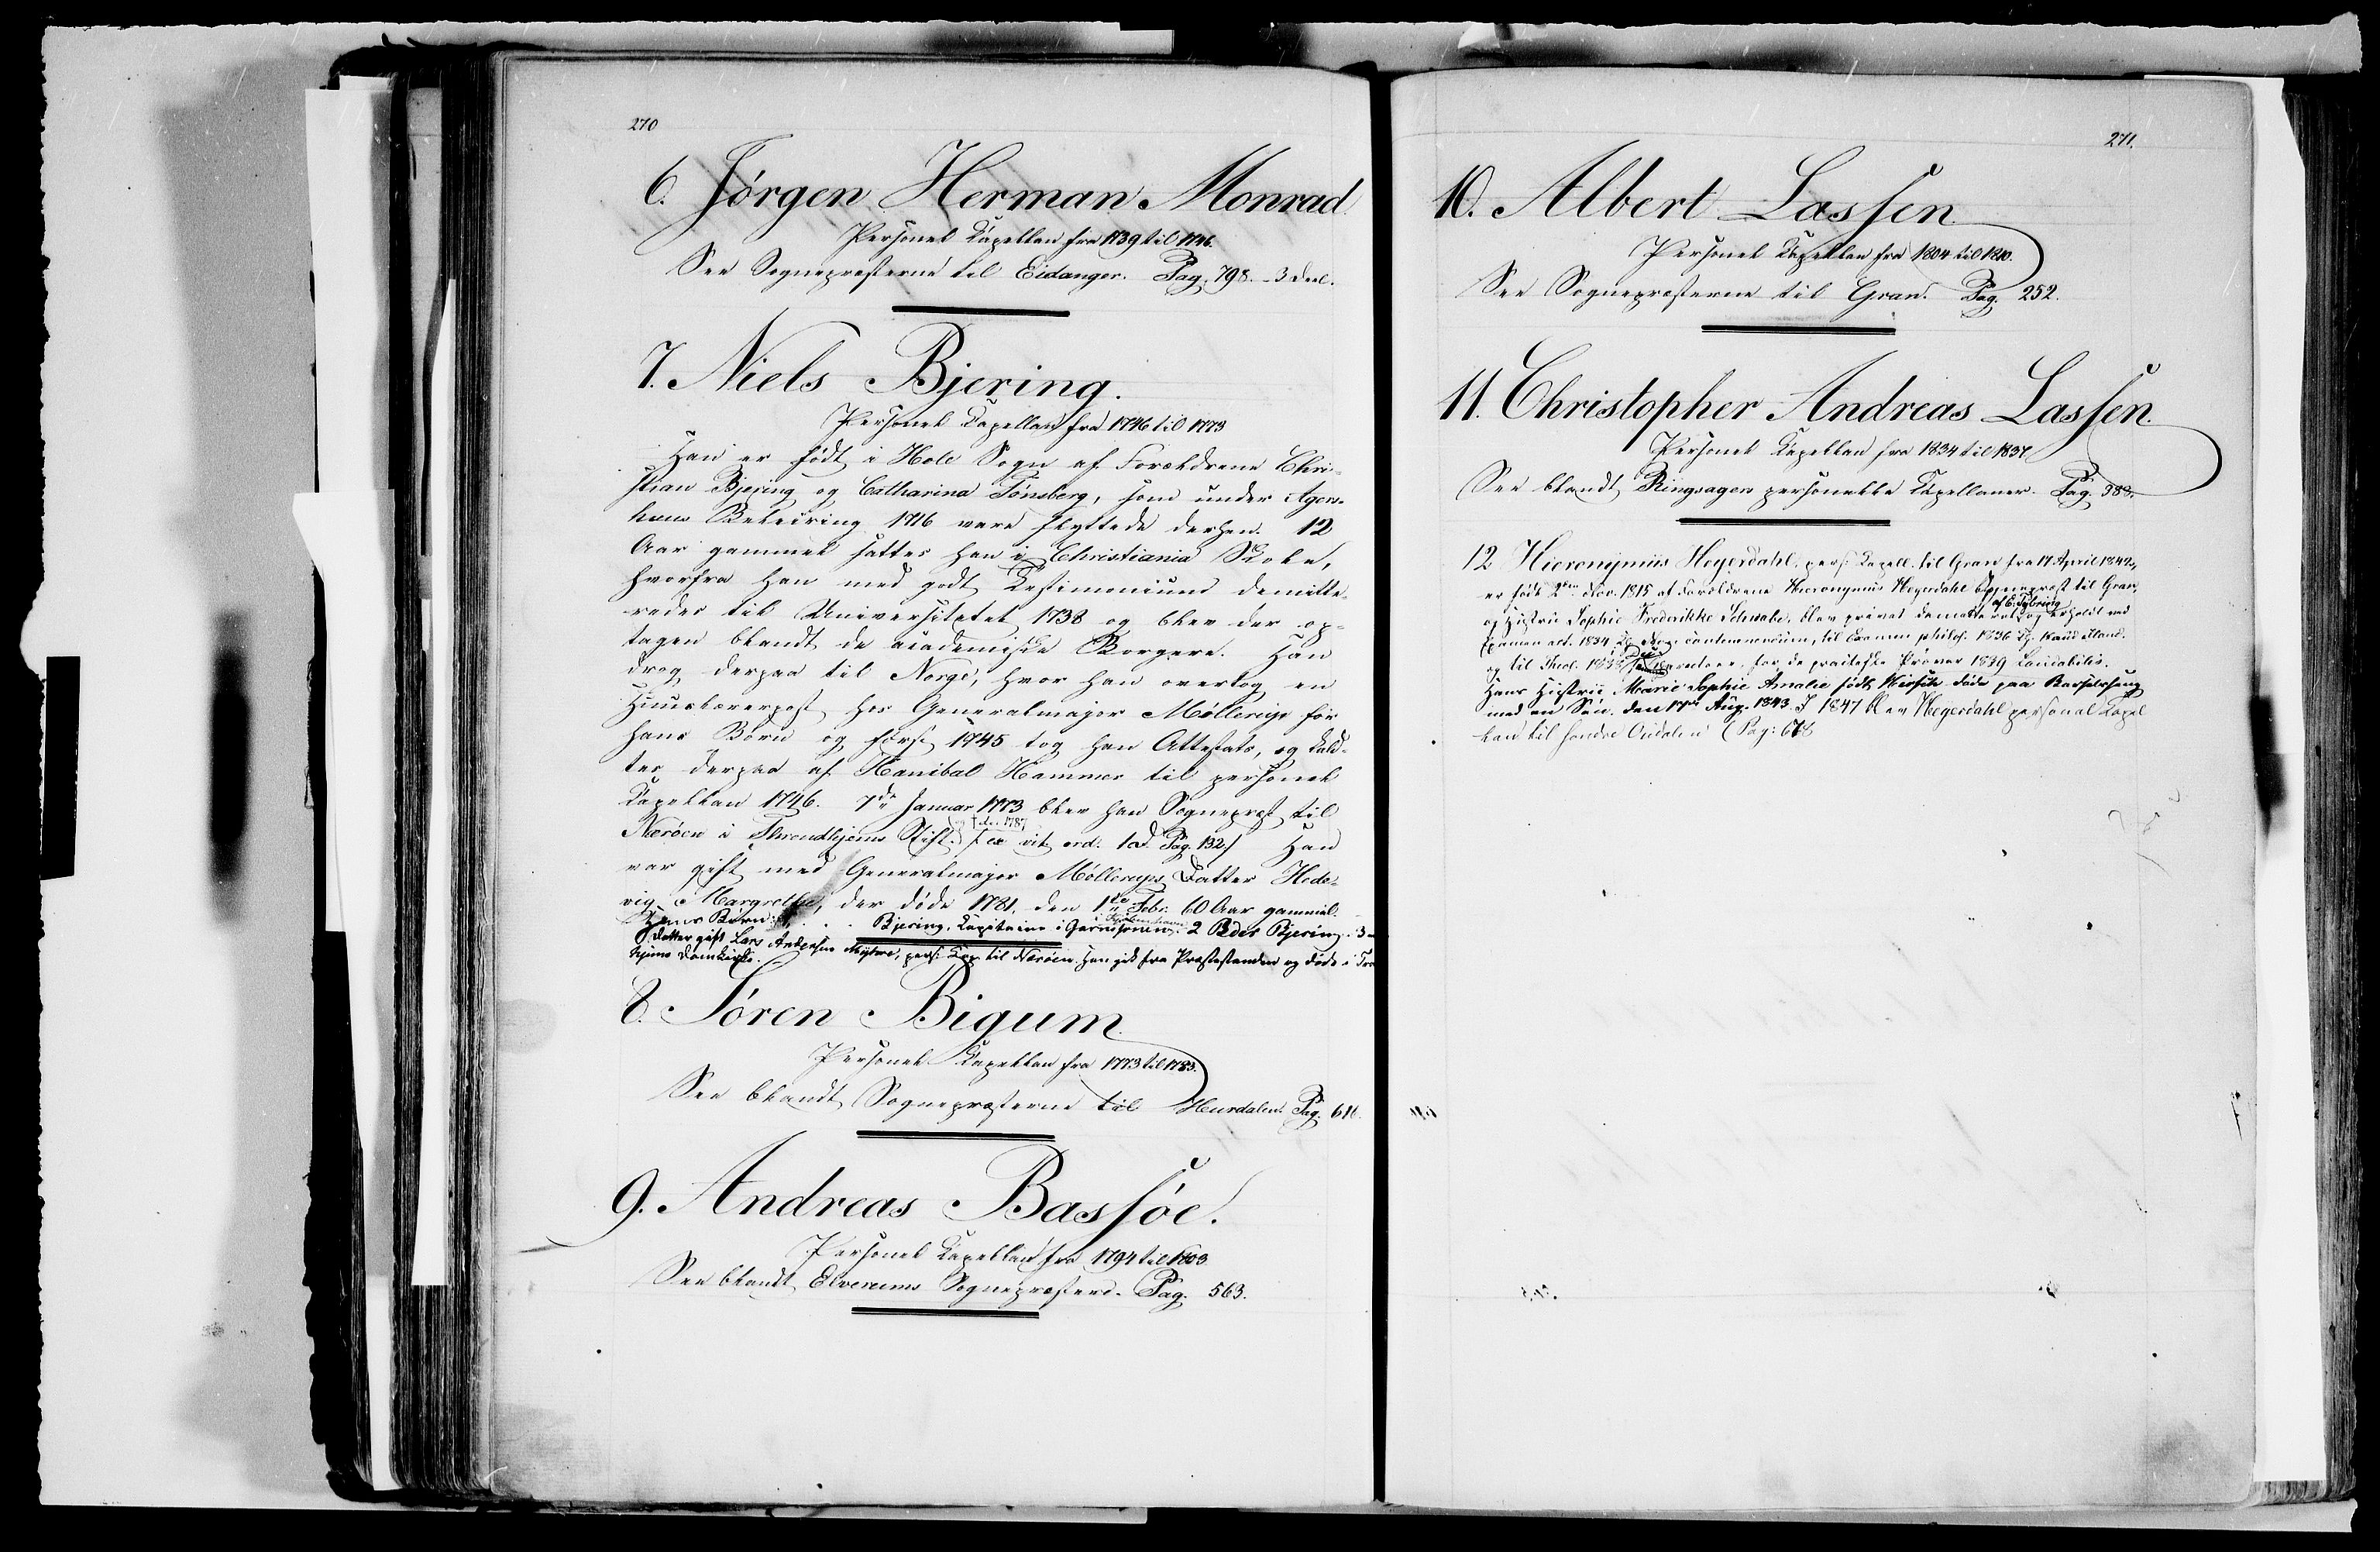 270
6. Jörgen Herman Monrad.
Personel Kapellan fra 1739 til 1746.
See Sognepræsterne til Eidanger. Pag. 798. 3 Deel.
7. Niels Bjering.
Personel Kapellan fra 1746 til 1773
Han er født i Hole Sogn af Forældrene Chri-
stian Bjering og Catharina Tønsberg, som under Agers-
huus Beleiring 1716 vare flyttede derhen. 12
Aar gammel sattes han i Christiania Skole,
hvorfra han med godt Testimonium demitte-
redes til Universitetet 1738 og blev der op-
tagen blandt de academiske Borgere. Han
drog derpaa til Norge, hvor han overtog en
Huuslærerpost hos Generalmajor Möllerup for
hans Børn og først 1745 tog han Attestats, og kald-
tes derpaa af Hanibal Hammer til personel
Kapellan 1746. 7de Januar 1773 blev han Sognepræst til
Nærøen i Throndhjems Stift. og † der 1787 (ex vit. ord. 1 D. Pag. 132.) Han
var gift med Generalmajor Möllerups Datter Hede-
vig Margrethe, der døde 1781, den 1ste Febr. 60 Aar gammel.
Hans Børn: 1, . . . Bjering, Kapitaine i Garnisonen i Kjøbenhavn. 2 Peder Bjering. 3 -
Datter gift Lars Andersen Myhre, pers: Kap. til Nærøen. Han gik fra Præstestanden og døde i Tro
hjems Domkirke.
8. Sören Bigum
Personel Kapellan fra 1773 til 1783.
See blandt Sognepræsterne til Hurdalen. Pag. 616.
9. Andreas Bassöe.
Personel Kapellan fra 1794 til 1803.
See blandt Elverums Sognepræster. Pag. 563.
271.
10. Albert Lassen
Personel Kapellan fra 1804 til 1810.
See Sognepræsterne til Gran. Pag. 252.
11. Christopher Andreas Lassen.
Personel Kapellan fra 1834 til 1837
See blandt Ringsagers personelle Kapellaner. Pag. 383.
12 Hieronymus Heyerdahl, pers: Kapell. til Gran fra 17 April 1842,
er født 2den Nov. 1815 af Forældrene Hieronymus Heyerdahl Sognepræst til Gran,
og Hustru Sophie Frederikke Schwabe, blev privat demitteret af C. Dybring og erholdt ved
Examen art. 1834 Laud, til Examen philos. 1836 Haud illaud.
og til Theol. 1838 for de practiske Prøver 1839 Laudabilis.
Hans Hustrue Marie Sophie Amalie født Hirsch døde paa Barselseng
med en Søn. den 17de Aug. 1843. I 1847 blev Heyerdahl personel Kapel
lan til søndre Oudalen (Pag: 678